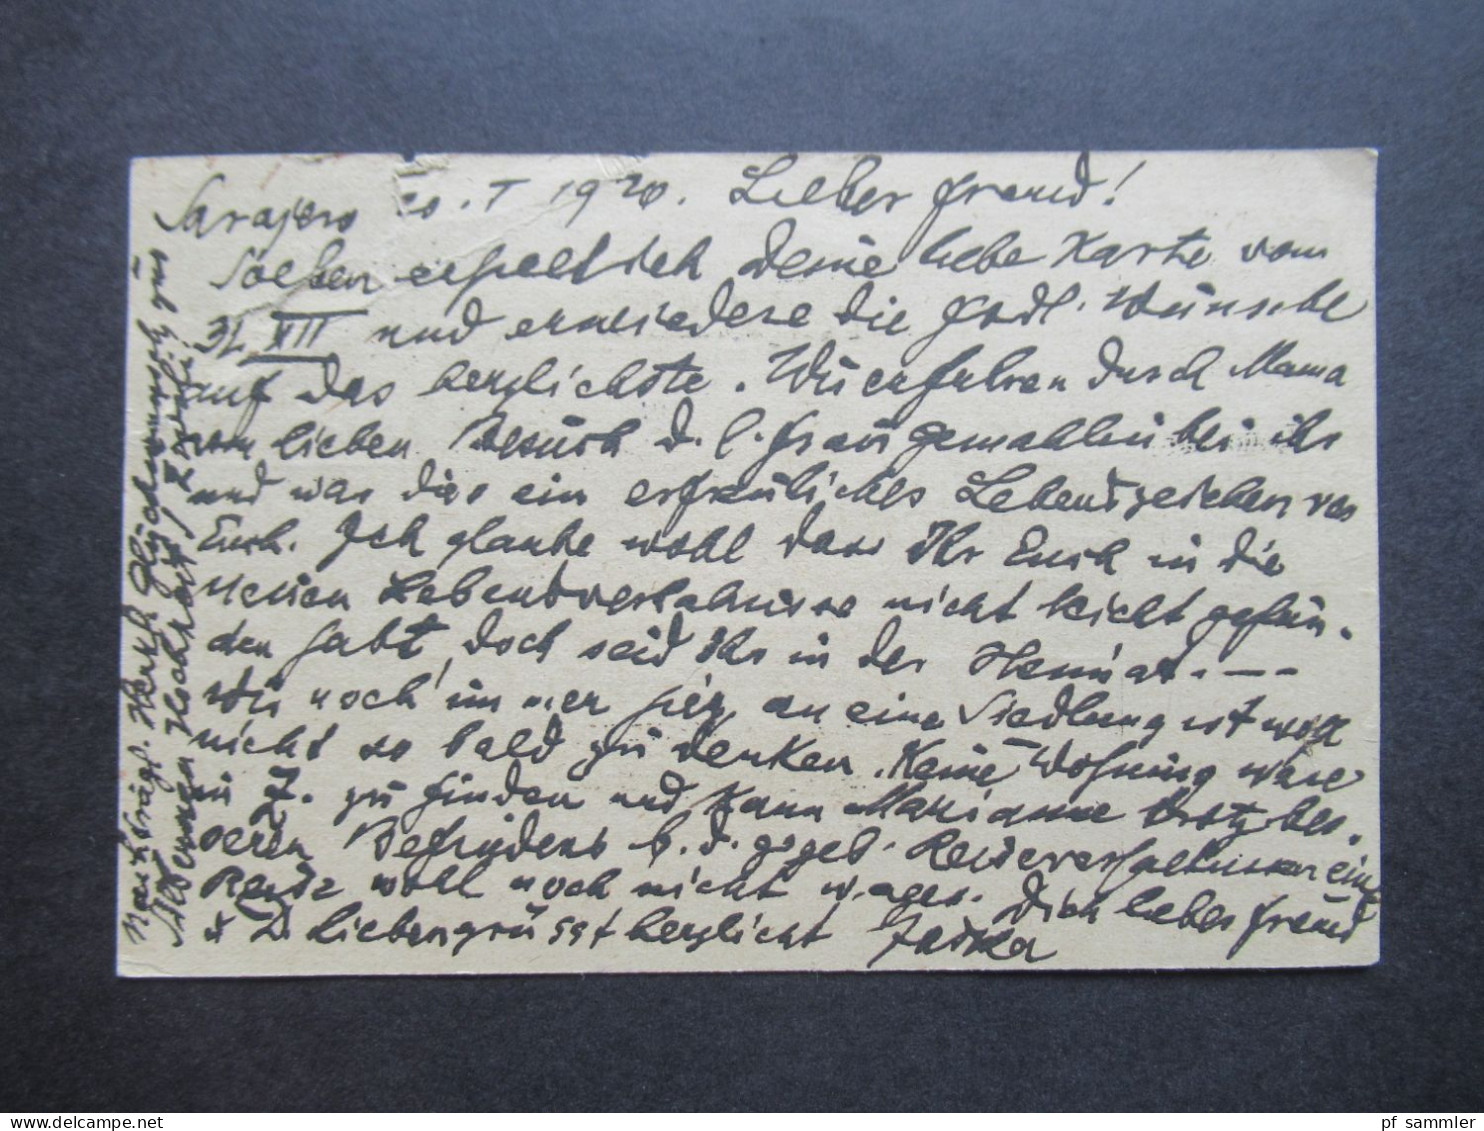 Sarajevo 20. I 1920. Lieber Freund!
Soeben erhielt ich Deine liebe Karte vom
31 XII und erwiedere die frdl. Wünsche
auf das herzlichste. Wir erfuhren durch Mama
vom lieben Besuch d. l. Frau Gemahlin bei ihr
und war dies ein erfreuliches Lebenszeichen von
Euch. Ich glaube wohl dass Ihr Euch in die
neuen Lebensverhältnisse nicht leicht gefun-
den habt, doch seid Ihr in der Heimat. --
Wir noch immer hier, an eine Siedlung ist wohl
nicht so bald zu denken. Keine Wohnung wäre
in zu finden und kann Marianne trotz bes.
deren Befindens b. d. gegeb. Reiseverhältnissen eine
Reise wohl noch nicht wagen. Dich lieber Freund
& D. Lieben grüsst herzlichst
Nachträgl. Herzl. Glückwunsch zur
Silbernen Hochzeit!
pf sammler